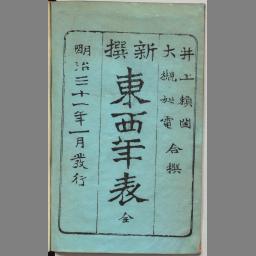 井上頼圀
大槻如電 合撰
新撰
東西年表 全
明治三十一年一月發行